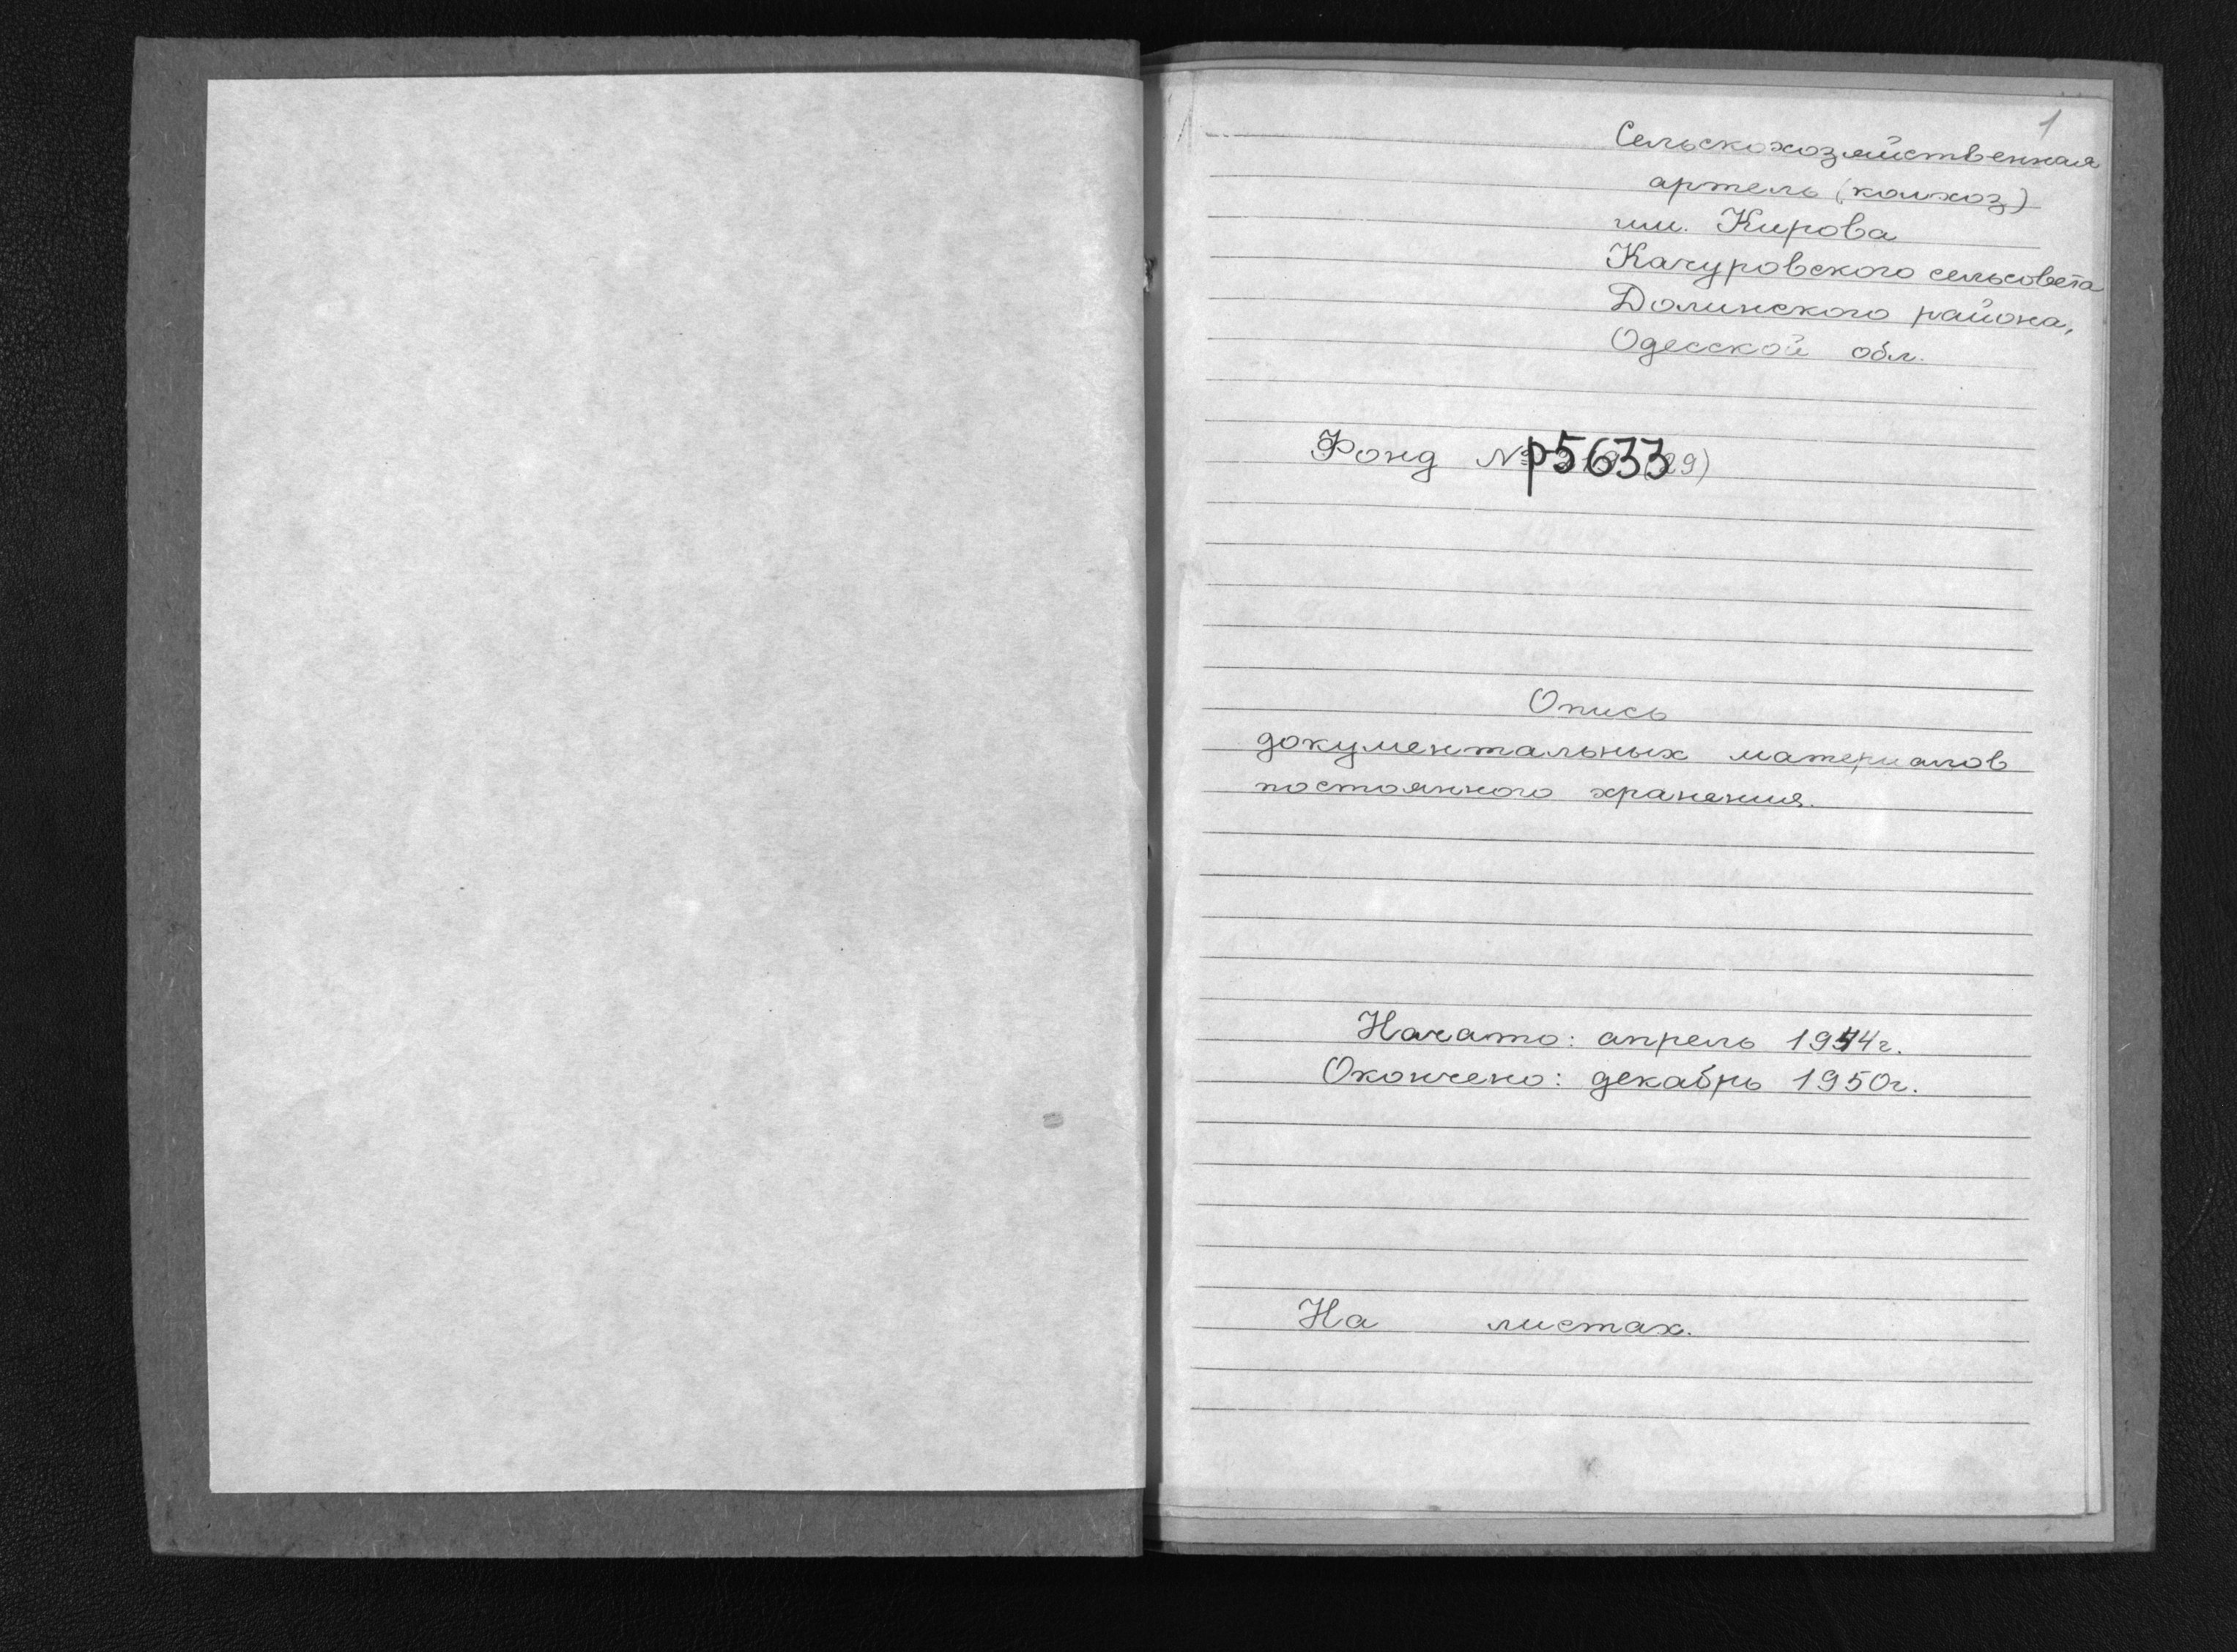 1
Сельскохозяйственная
артель (колхоз)
им. Кирова
Качуровского сельсовета
Долинского района,
Одесской обл.
Фонд № р5633 29)
Опись
документальных материалов
постоянного хранения.
Начато: апрель 1944г.
Окончено: декабрь 1950г.
На листах.